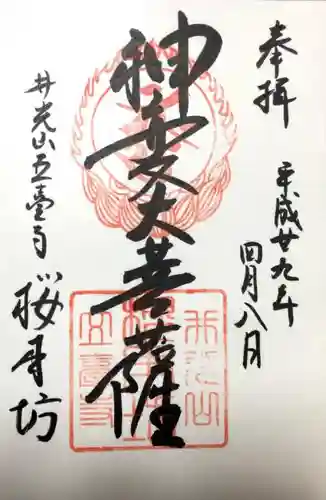 奉拝
平成廿九年
四月八日
神変大菩薩
井光山五臺寺
桜本坊